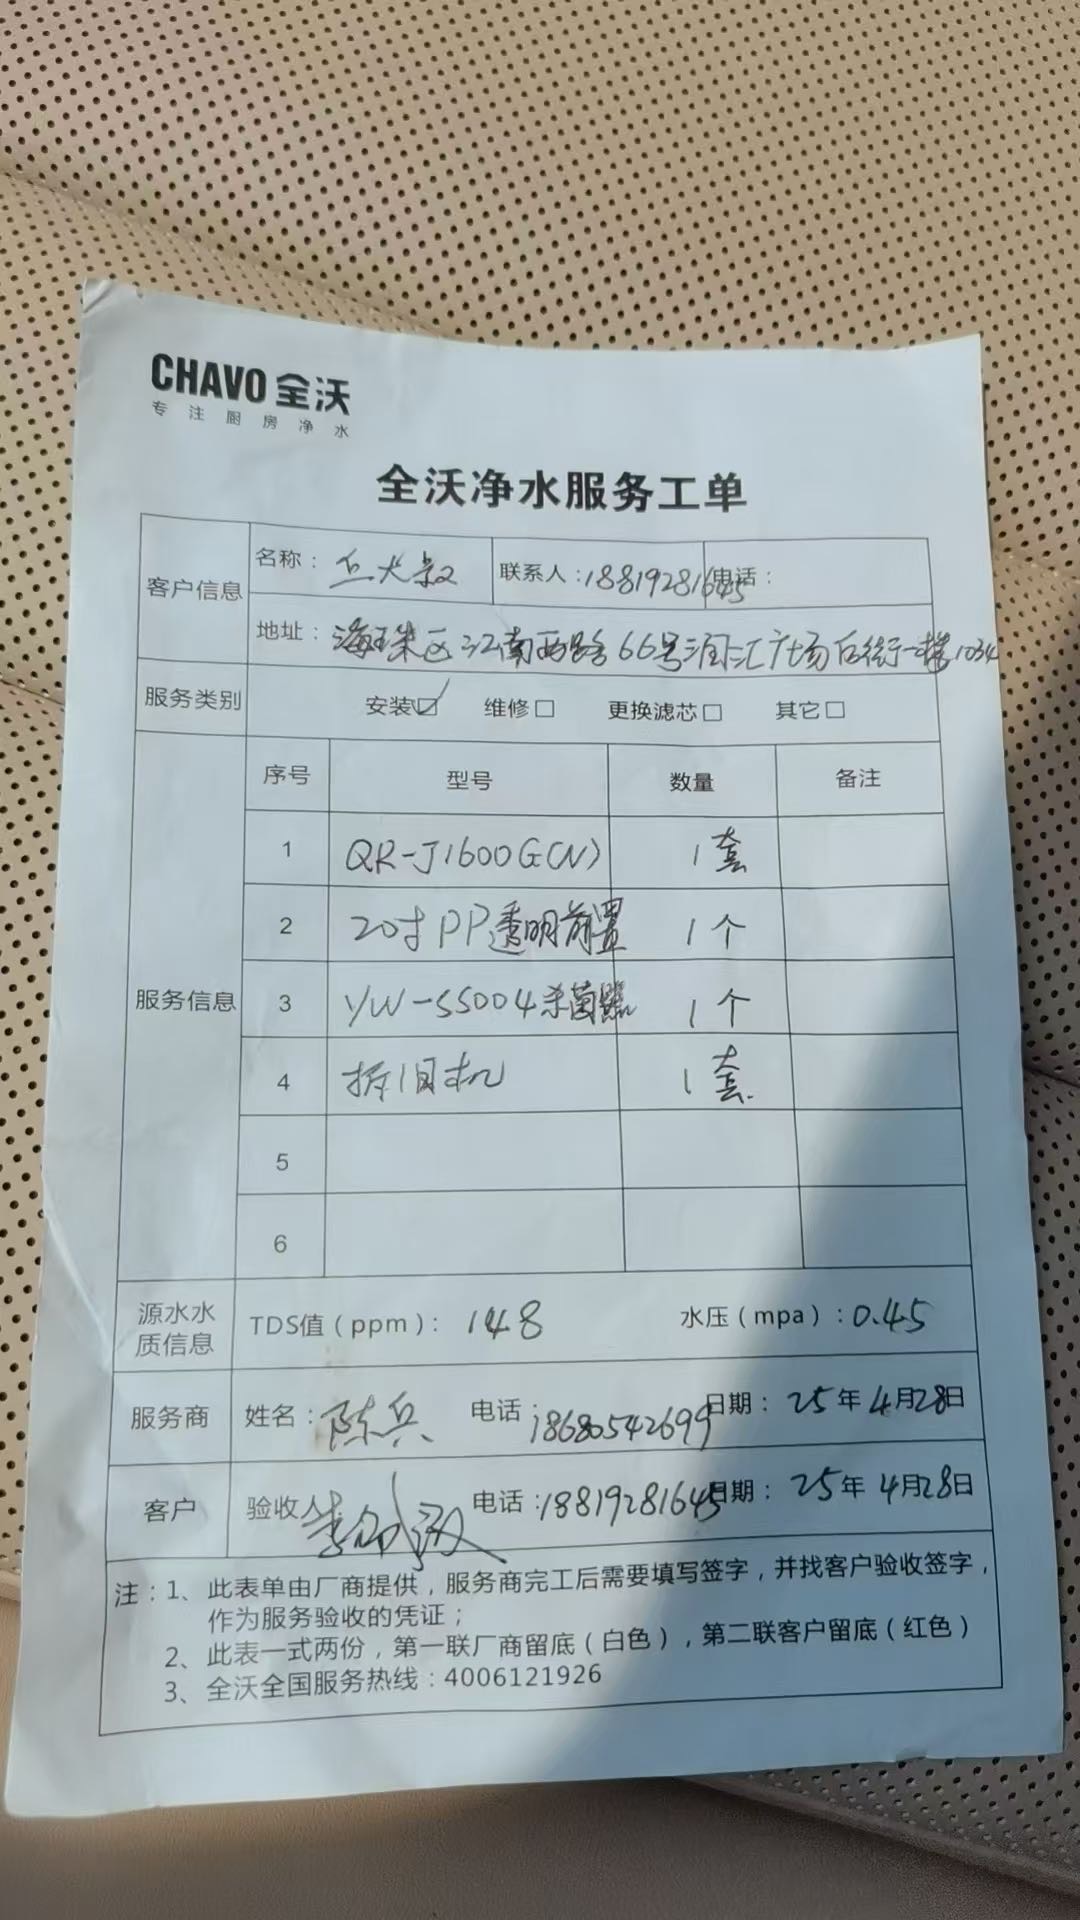 CHAVO 全沃
专注厨房净水
全沃净水服务工单
客户信息 名称： 大叔 联系人：18819281645 电话：
地址：海珠区江南西路66号润汇广场后街一楼1034
服务类别 安装☑ 维修□ 更换滤芯□ 其它□
服务信息 序号 型号 数量 备注
1 QR-J1600G(N) 1套
2 20寸PP透明前置 1个
3 YW-SS004杀菌器 1个
4 拆旧机 1套
5
6
源水水质信息 TDS值（ppm）：148 水压（mpa）：0.45
服务商 姓名：陈兵 电话：18680542699 日期：25年4月28日
客户 验收人 电话：18819281645 日期：25年4月28日
注：1、此表单由厂商提供，服务商完工后需要填写签字，并找客户验收签字，
作为服务验收的凭证；
2、此表一式两份，第一联厂商留底（白色），第二联客户留底（红色）
3、全沃全国服务热线：4006121926